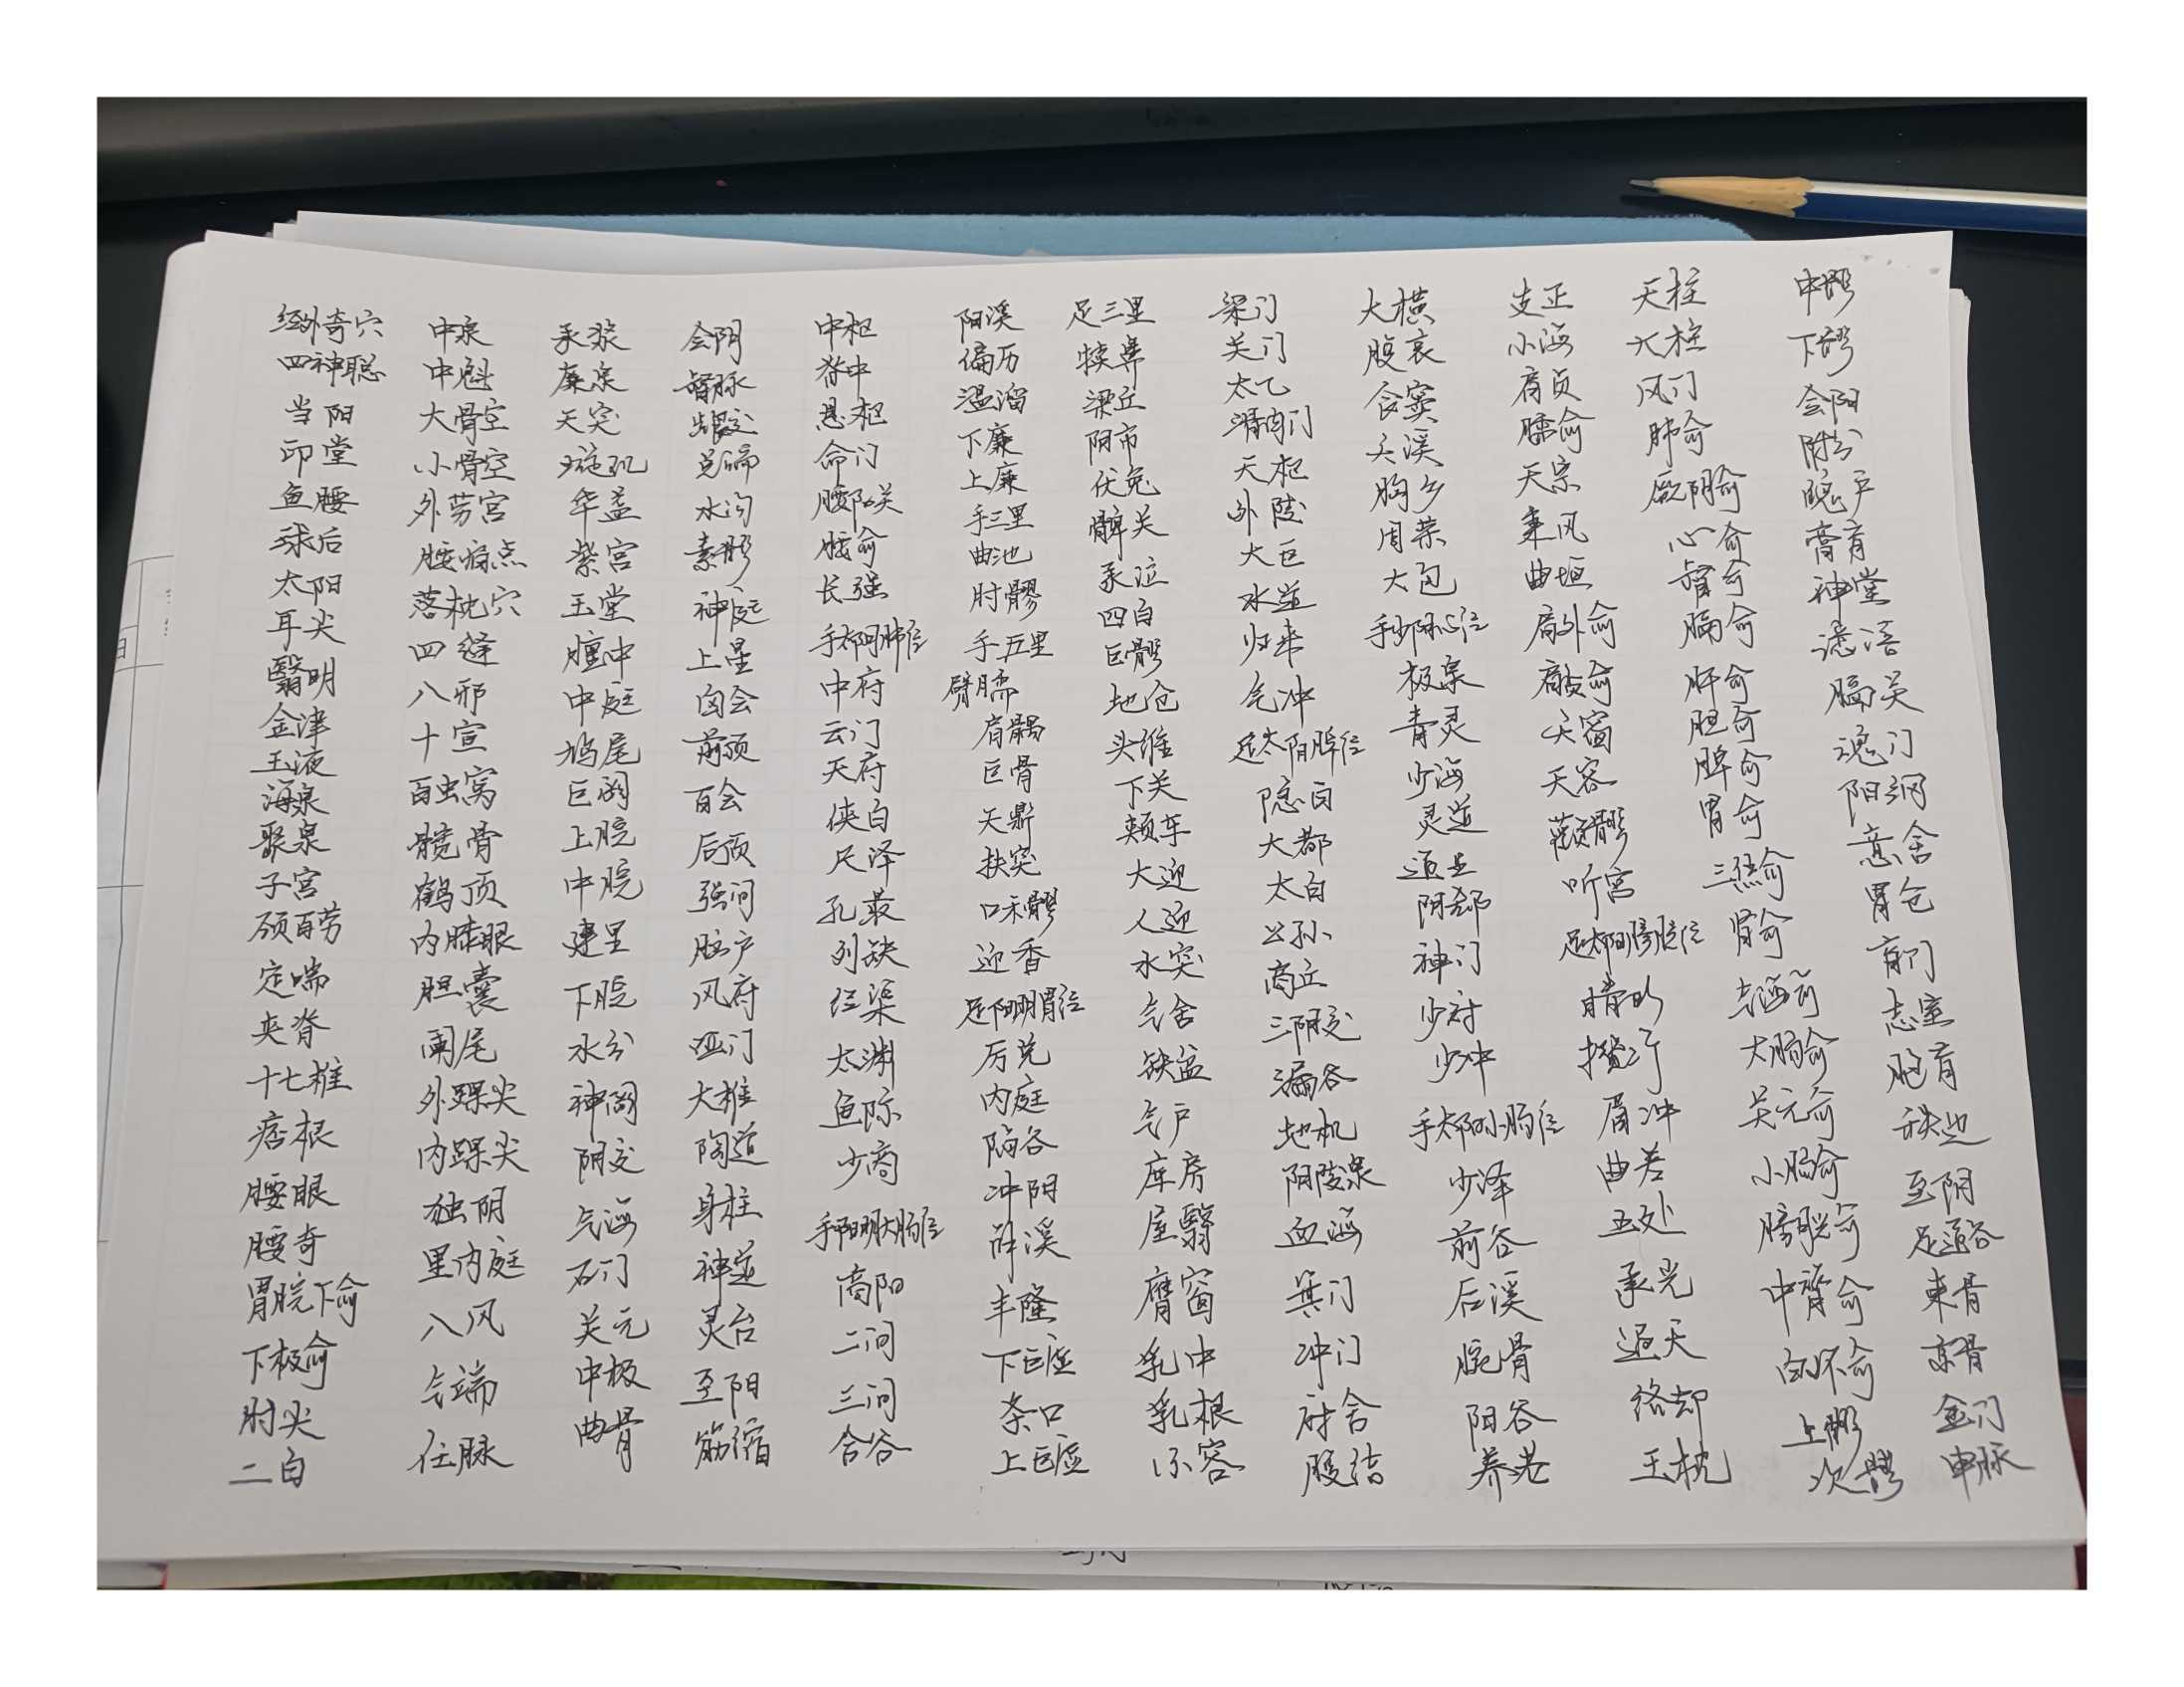 经外奇穴
四神聪
当阳
印堂
鱼腰
球后
太阳
耳尖
翳明
金津
玉液
海泉
聚泉
子宫
颈百劳
定喘
夹脊
十七椎
痞根
腰眼
腰奇
胃脘下俞
下极俞
肘尖
二白
中泉
中魁
大骨空
小骨空
外劳宫
腰痛点
落枕穴
四缝
八邪
十宣
百虫窝
髋骨
鹤顶
内膝眼
胆囊
阑尾
外踝尖
内踝尖
独阴
里内庭
八风
气端
任脉
承浆
廉泉
天突
璇玑
华盖
紫宫
玉堂
膻中
中庭
鸠尾
巨阙
上脘
中脘
建里
下脘
水分
神阙
阴交
气海
石门
关元
中极
曲骨
会阴
督脉
龈交
兑端
水沟
素髎
神庭
上星
囟会
前顶
百会
后顶
强间
脑户
风府
哑门
大椎
陶道
身柱
神道
灵台
至阳
筋缩
中枢
脊中
悬枢
命门
腰阳关
腰俞
长强
手太阴肺经
中府
云门
天府
侠白
尺泽
孔最
列缺
经渠
太渊
鱼际
少商
手阳明大肠经
商阳
二间
三间
合谷
阳溪
偏历
温溜
下廉
上廉
手三里
曲池
肘髎
手五里
臂臑
肩髃
巨骨
天鼎
扶突
口禾髎
迎香
足阳明胃经
厉兑
内庭
陷谷
冲阳
解溪
丰隆
下巨虚
条口
上巨虚
足三里
犊鼻
梁丘
阴市
伏兔
髀关
承泣
四白
巨髎
地仓
头维
下关
颊车
大迎
人迎
水突
气舍
缺盆
气户
库房
屋翳
膺窗
乳中
乳根
不容
梁门
关门
太乙
滑肉门
天枢
外陵
大巨
水道
归来
气冲
足太阴脾经
隐白
大都
太白
公孙
商丘
三阴交
漏谷
地机
阴陵泉
血海
箕门
冲门
府舍
腹结
大横
腹哀
食窦
天溪
胸乡
周荣
大包
手少阴心经
极泉
青灵
少海
灵道
通里
阴郄
神门
少府
少冲
手太阳小肠经
少泽
前谷
后溪
腕骨
阳谷
养老
支正
小海
肩贞
臑俞
天宗
秉风
曲垣
肩外俞
天窗
天容
颧髎
听宫
足太阳膀胱经
睛明
攒竹
眉冲
曲差
五处
承光
通天
络却
玉枕
天柱
大柱
风门
肺俞
厥阴俞
心俞
督俞
膈俞
肝俞
胆俞
脾俞
胃俞
三焦俞
肾俞
气海俞
大肠俞
关元俞
小肠俞
膀胱俞
中膂俞
白环俞
上髎
次髎
中髎
下髎
会阳
附分
魄户
膏肓
神堂
譩语
膈关
魂门
阳纲
意舍
胃仓
肓门
志室
胞肓
秩边
至阴
足通谷
束骨
京骨
金门
申脉